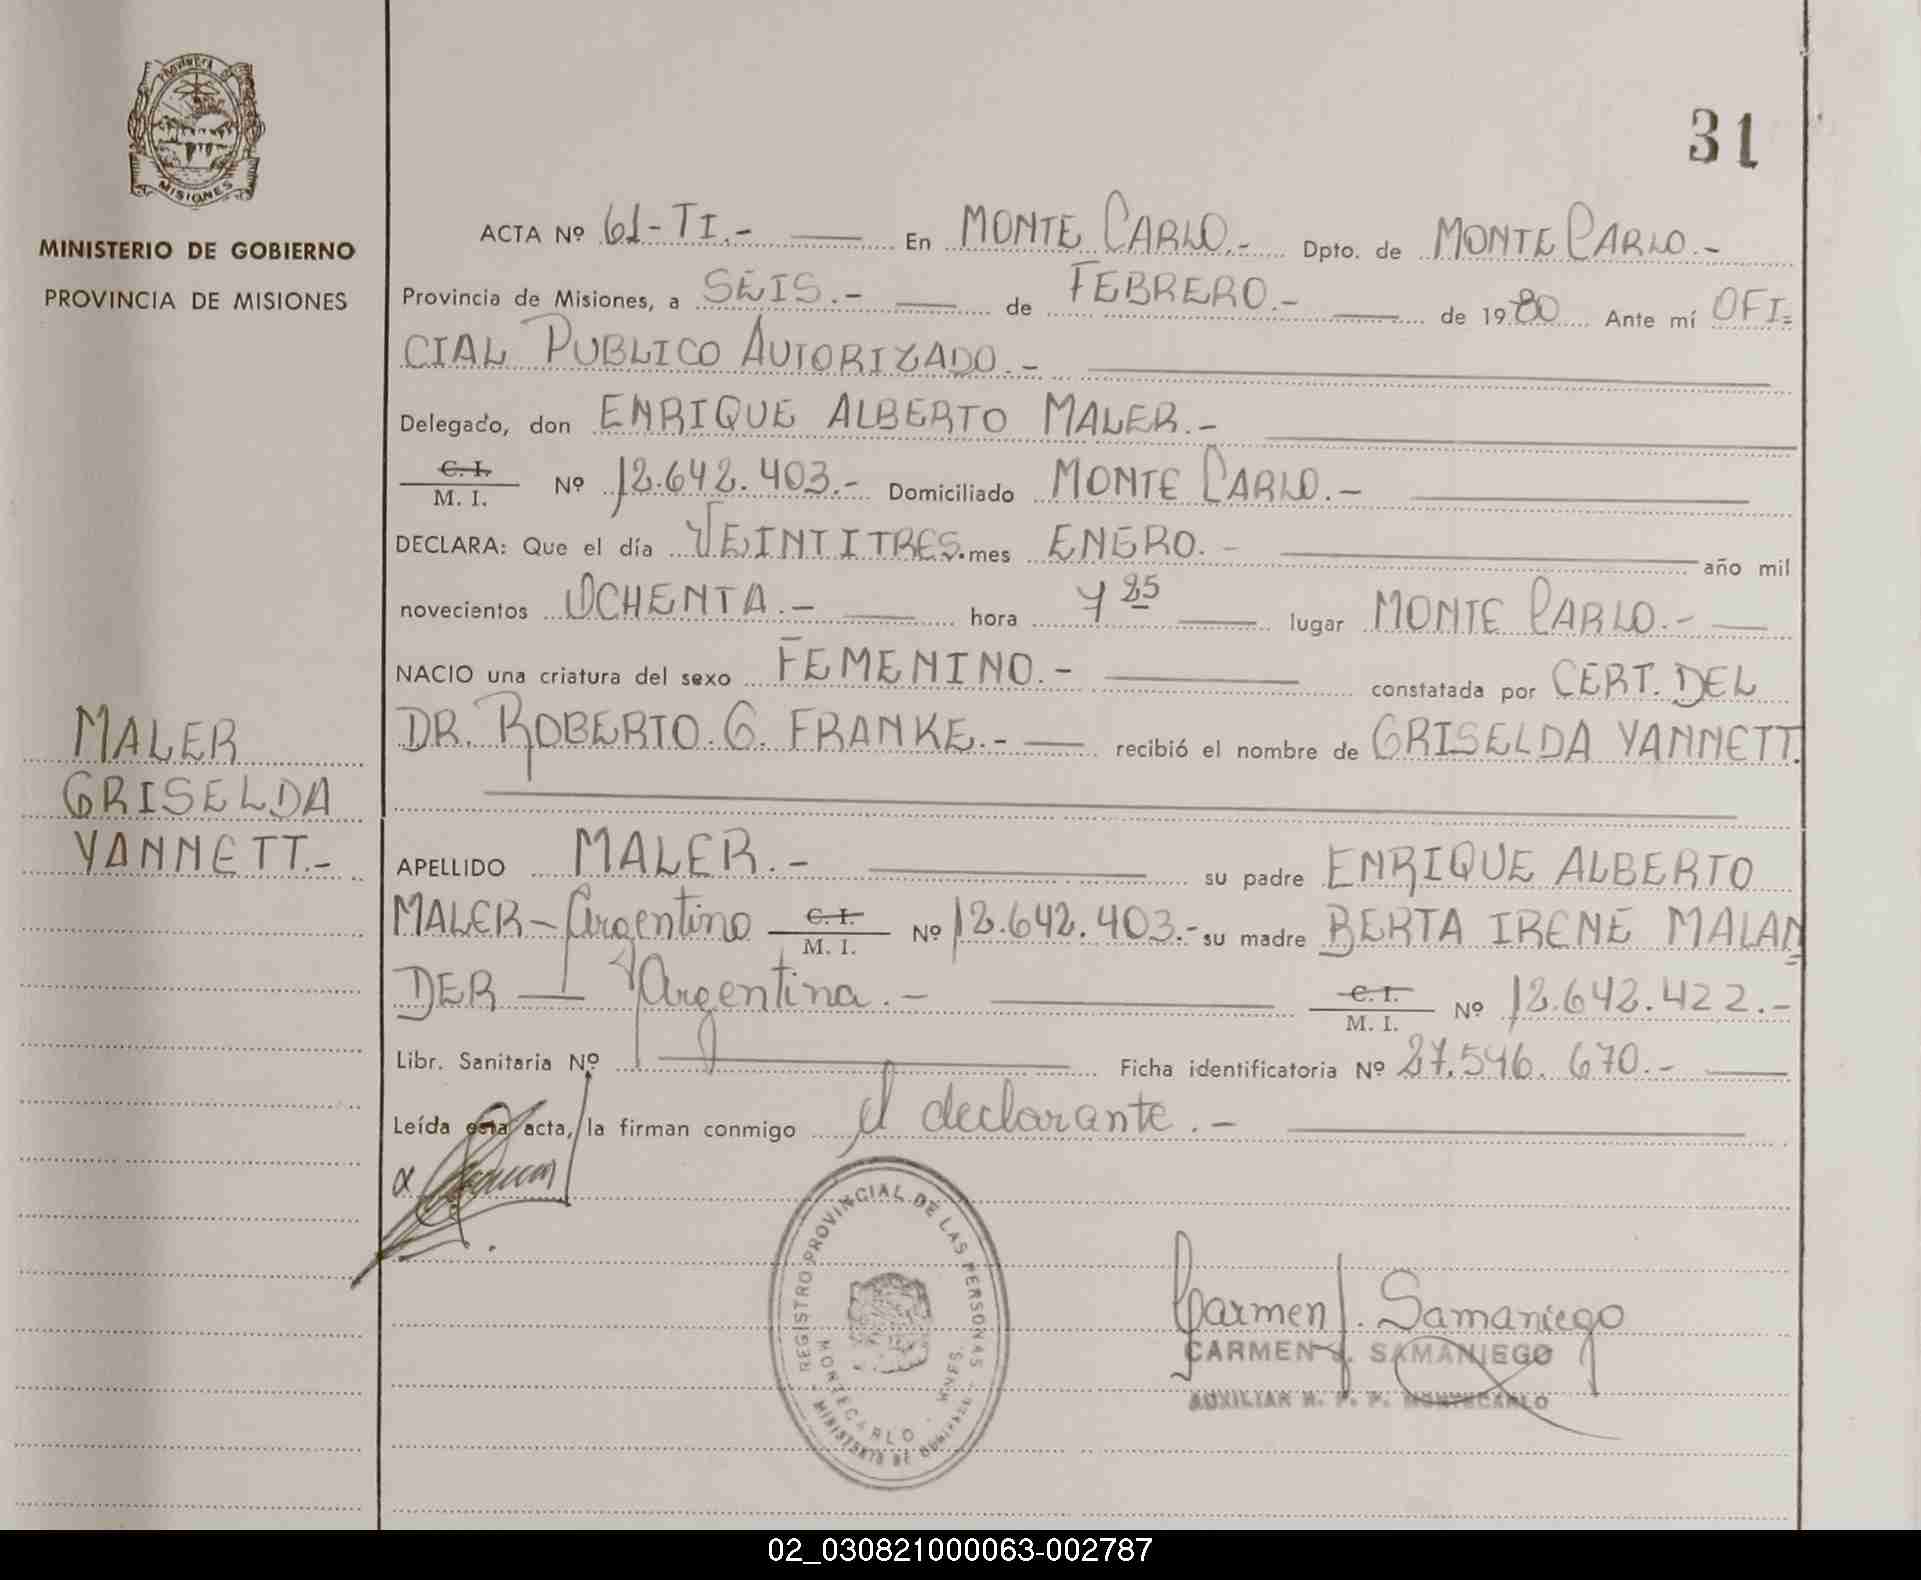 PROVINCIA DE
MISIONES
MINISTERIO DE GOBIERNO
PROVINCIA DE MISIONES
MALER
GRISELDA
YANNETT.-
31
ACTA Nº 61-TI.- En MONTE CARLO.- Dpto. de MONTE CARLO.-
Provincia de Misiones, a SEIS.- de FEBRERO.- de 1980 Ante mí OFI=
CIAL PUBLICO AUTORIZADO.-
Delegado, don ENRIQUE ALBERTO MALER.-
C. I.
M. I. Nº 12.642.403.- Domiciliado MONTE CARLO.-
DECLARA: Que el día VEINTITRES. mes ENERO.- año mil
novecientos OCHENTA.- hora 7 25 lugar MONTE CARLO.-
NACIO una criatura del sexo FEMENINO.- constatada por CERT. DEL
DR. ROBERTO. G. FRANKE.- recibió el nombre de GRISELDA YANNETT.
APELLIDO MALER.- su padre ENRIQUE ALBERTO
MALER- Argentino C. I. M. I. Nº 12.642.403.- su madre BERTA IRENE MALAN
DER — Argentina.- C. I. M. I. Nº 12.642.422.-
Libr. Sanitaria Nº Ficha identificatoria Nº 27.546.670.-
Leída esta acta, la firman conmigo el declarante.-
REGISTRO PROVINCIAL DE LAS PERSONAS
MONTECARLO - MNES.
MINISTERIO DE GOBIERNO
Carmen J. Samaniego
CARMEN J. SAMANIEGO
AUXILIAR R. P. P. MONTECARLO
02_030821000063-002787